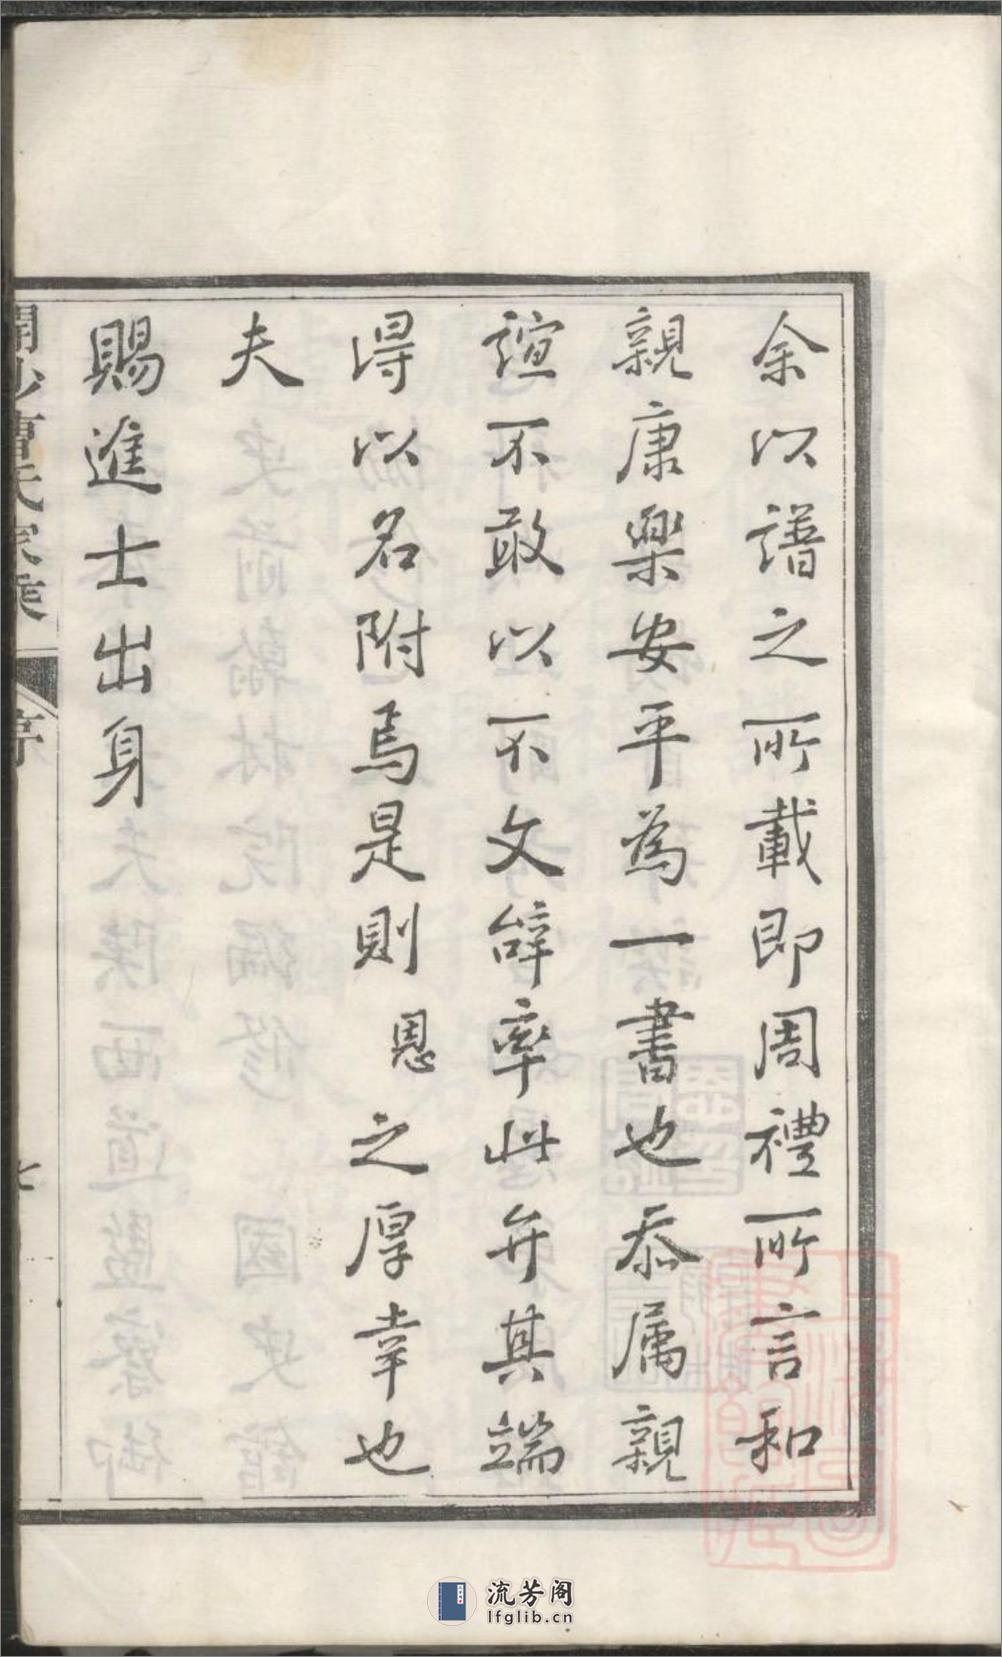 余以譜之所載即周禮所言和
親康樂安平為一書也忝属親
誼不敢以不文辭率此弁其端
淂以名附焉是則恩之厚幸也
夫
賜進士出身
序
七
流芳阁
lfglib.cn